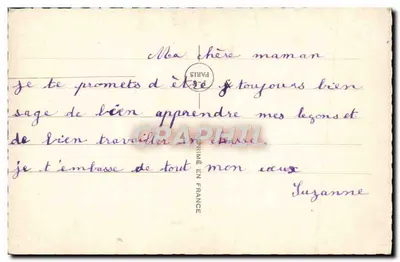 Ma chère maman
je te promets d être toujours bien
sage de bien apprendre mes leçons et
de bien travailler en classe.
je t'embasse de tout mon cœux
Suzanne
PARIS
EN FRANCE